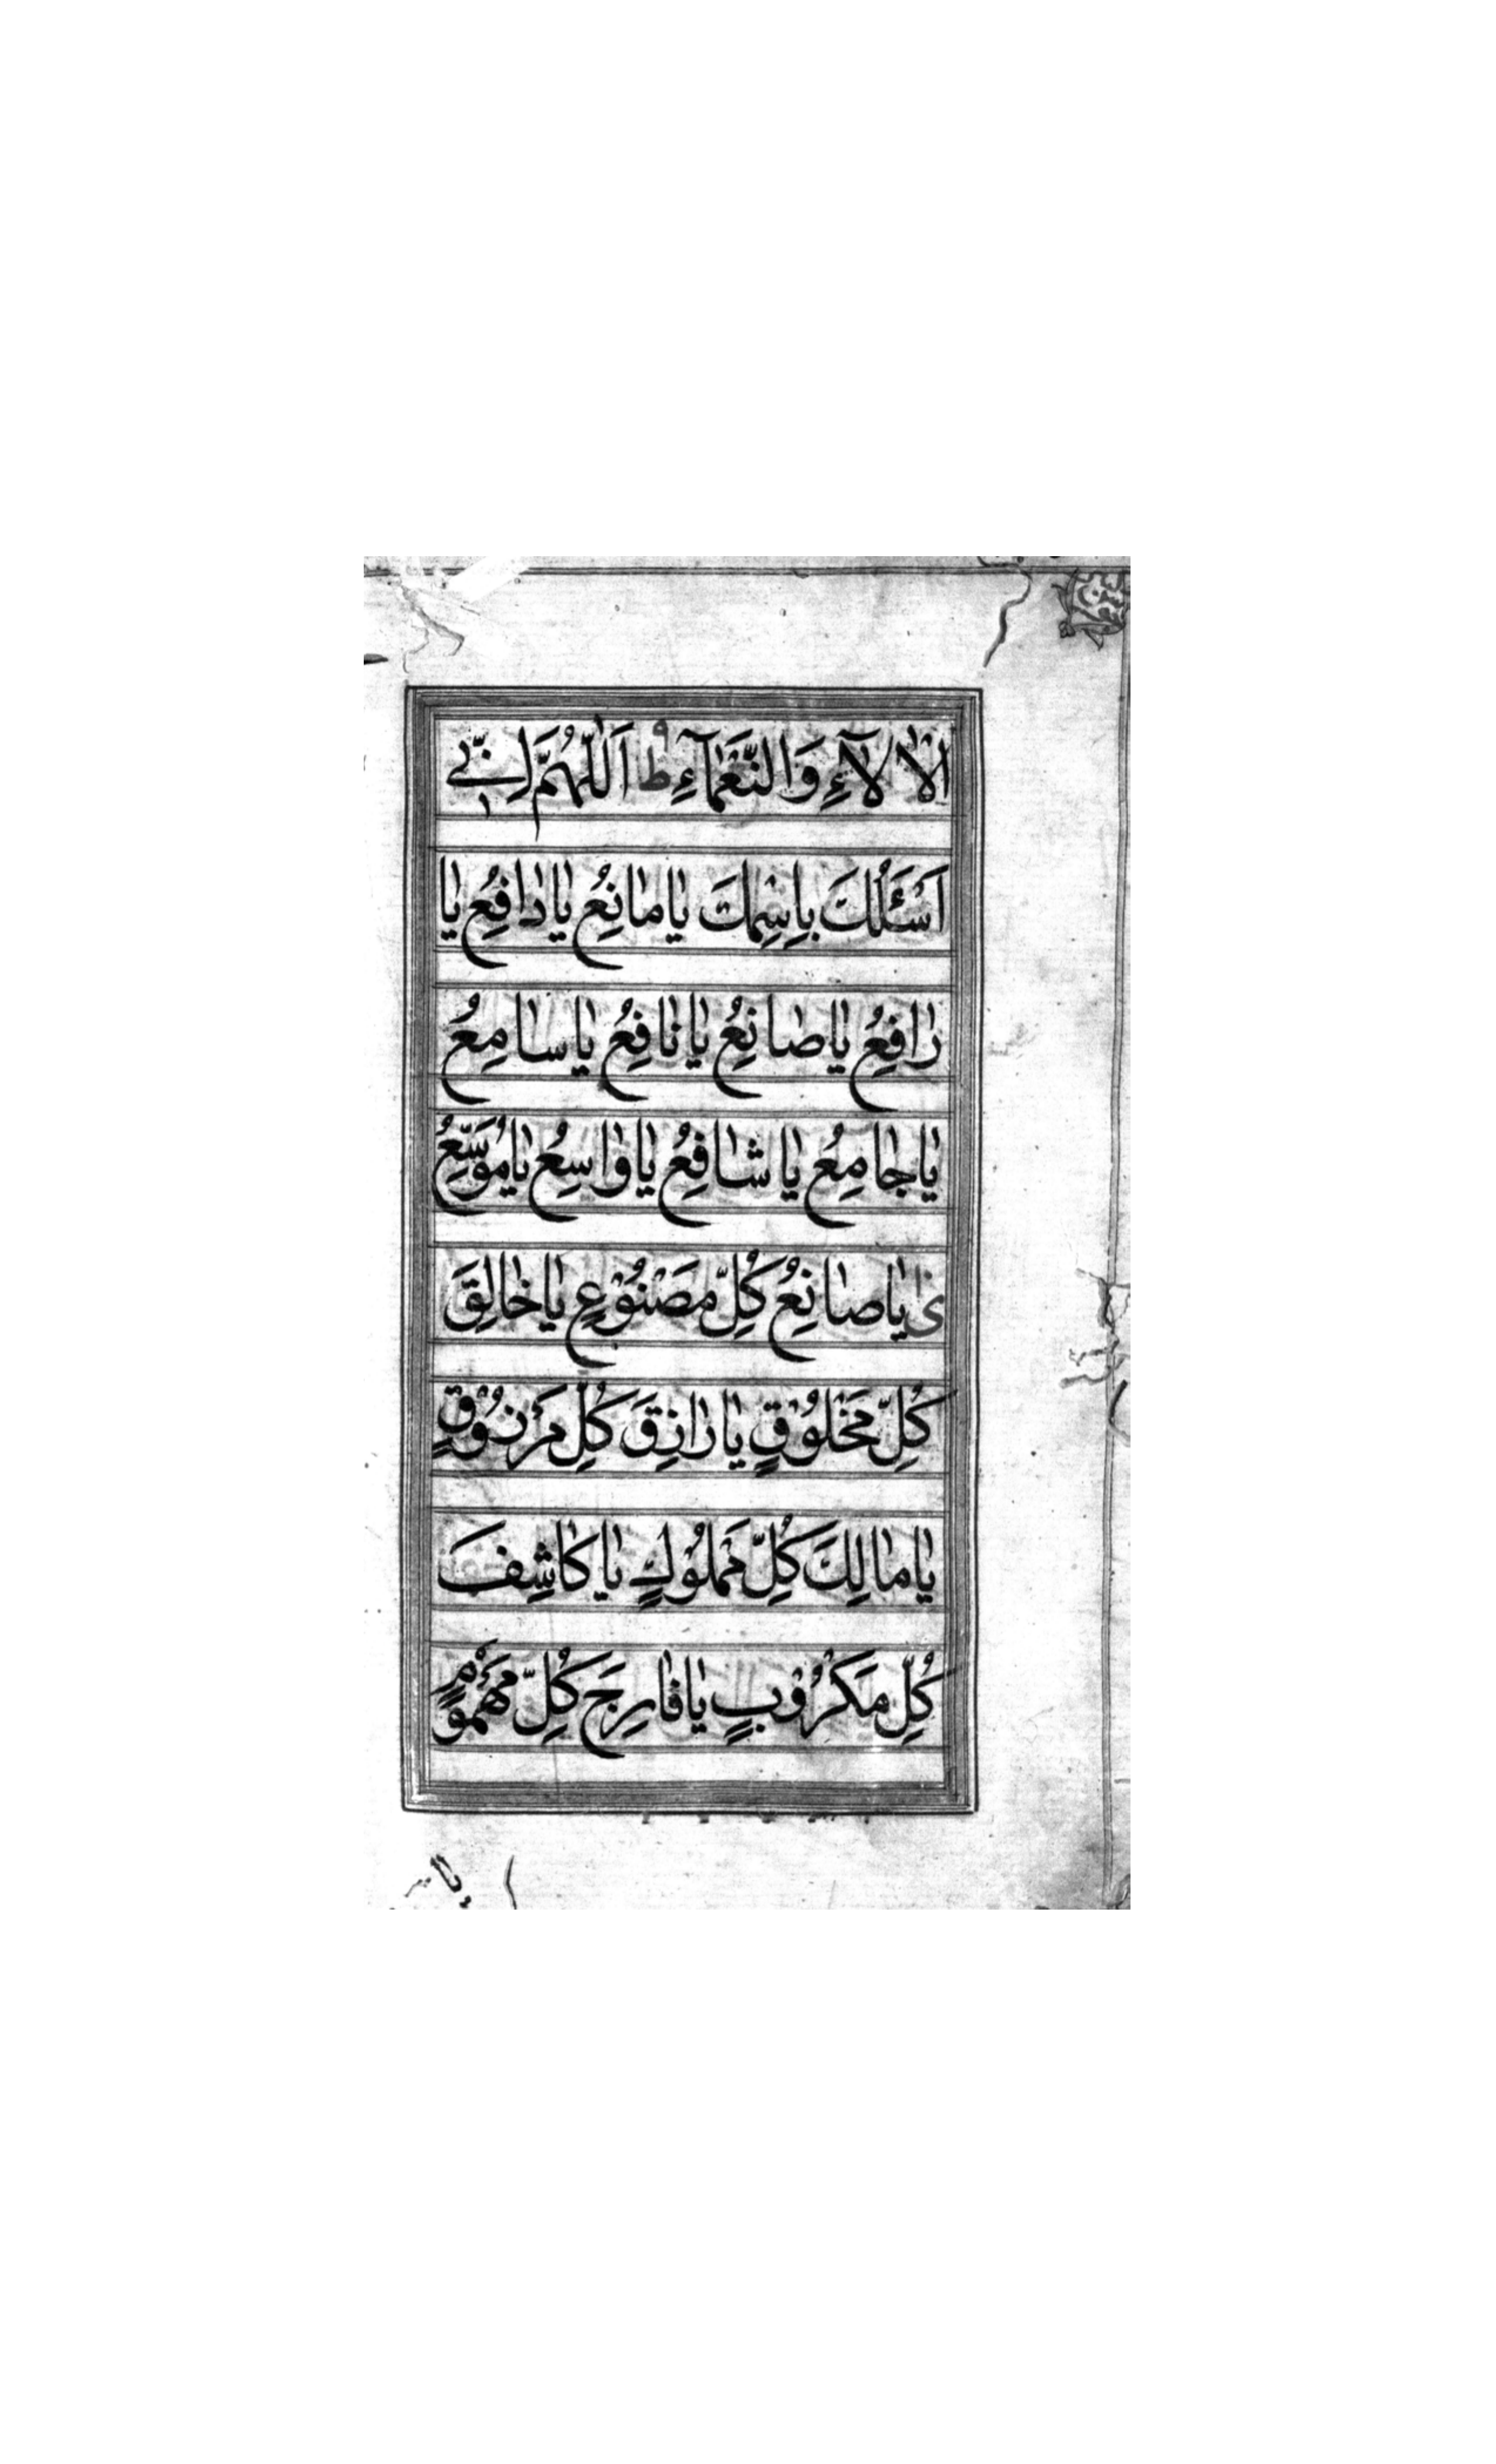 الْاٰلَآءِ وَالنَّعْمَآءِ ط ۹ اَللّٰهُمَّ اِنّٖى
اَسْئَلُكَ بِاسْمِكَ يٰا مٰانِعُ يٰا دٰافِعُ يٰا
رٰافِعُ يٰا صٰانِعُ يٰا نٰافِعُ يٰا سٰامِعُ
يٰا جٰامِعُ يٰا شٰافِعُ يٰا وٰاسِعُ يٰا مُوَسِّعُ
ى يٰا صٰانِعُ كُلِّ مَصْنُوْعٍ يٰا خٰالِقَ
كُلِّ مَخْلُوْقٍ يٰا رٰازِقَ كُلِّ مَرْزُوْقٍ
يٰا مٰالِكَ كُلِّ مَمْلُوْكٍ يٰا كٰاشِفَ
كُلِّ مَكْرُوْبٍ يٰا فٰارِجَ كُلِّ مَهْمُوْمٍ